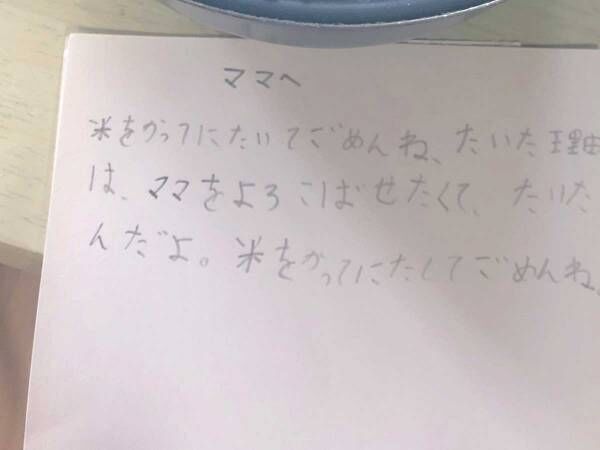 ママへ
米をかってにたいてごめんね、たいた理由
は、ママをよろこばせたくて、たいた
んだよ。米をかってにたくしてごめんね。